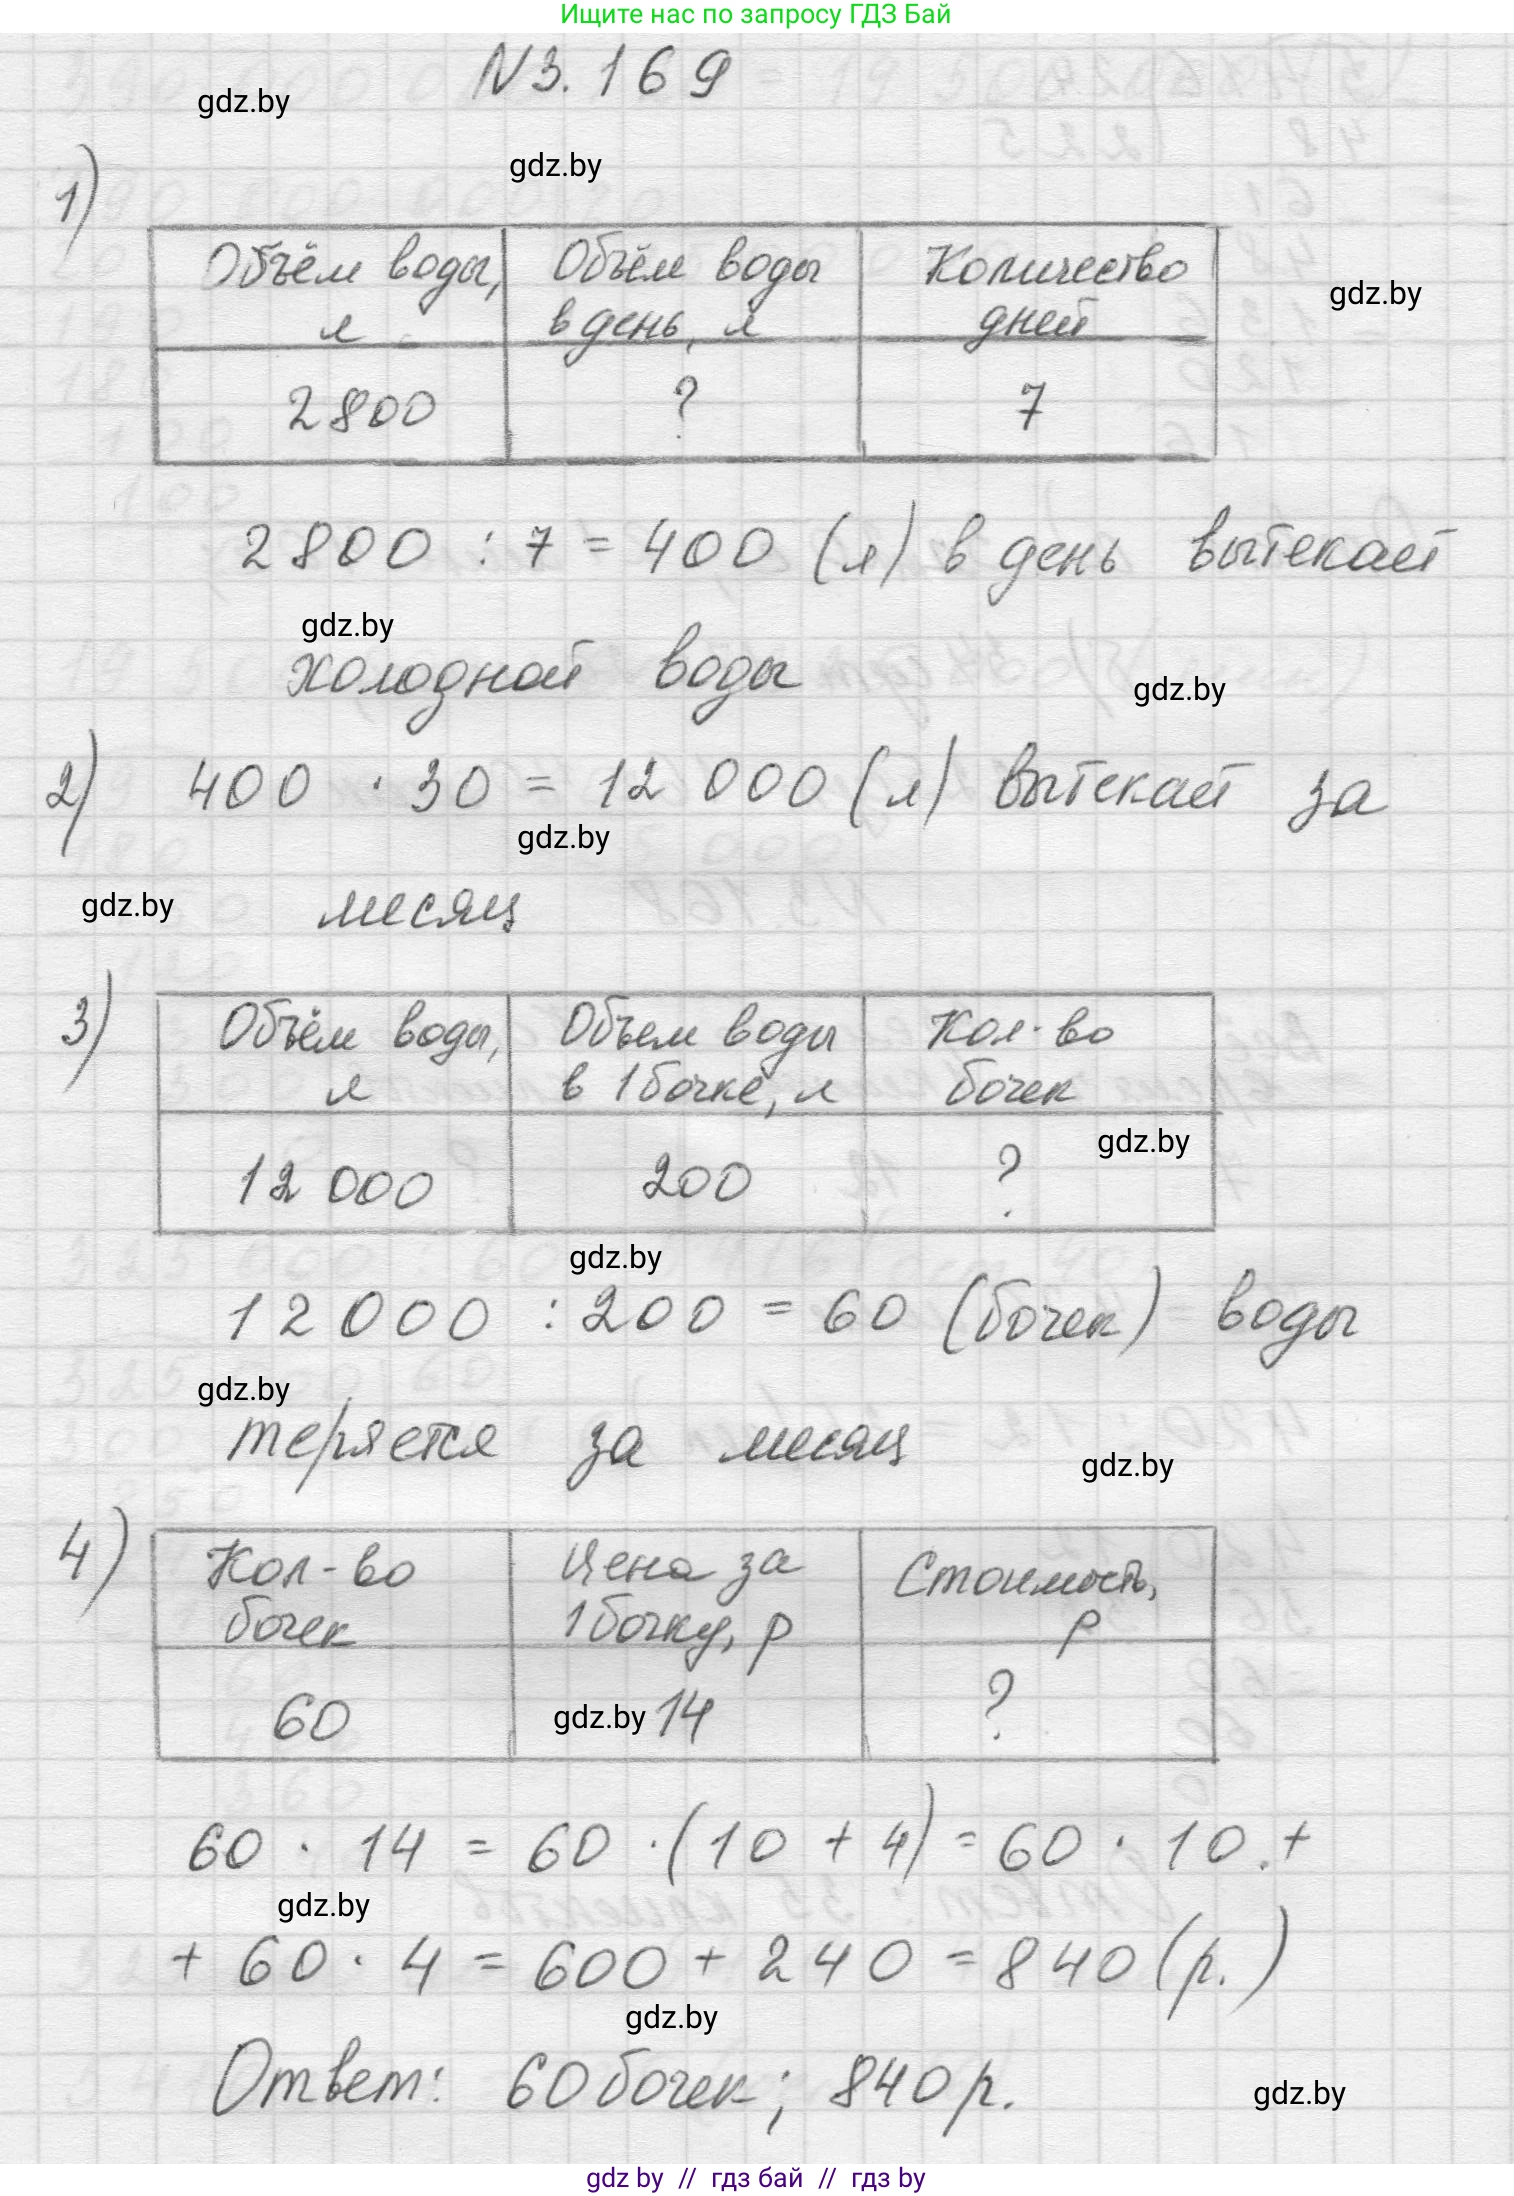 Ищите нас по запросу ГДЗ Бай
N3.169
gdz.by
gdz.by
1)
Объём воды, л | Объём воды в день, л | Количество дней
gdz.by
2800 | ? | 7
2800 : 7 = 400 (л) в день вытекает
gdz.by
холодной воды
gdz.by
2) 400 · 30 = 12 000 (л) вытекает за
gdz.by
gdz.by
месяц
3)
Объём воды, л | Объем воды в 1 бочке, л | Кол-во бочек
gdz.by
12 000 | 200 | ?
gdz.by
12000 : 200 = 60 (бочек) воды
gdz.by
теряется за месяц
gdz.by
4)
Кол-во бочек | Цена за 1 бочку, р | Стоимость, р
60 | 14 | ?
gdz.by
60 · 14 = 60 · (10 + 4) = 60 · 10 +
gdz.by
+ 60 · 4 = 600 + 240 = 840 (р.)
gdz.by
Ответ: 60 бочек; 840 р.
gdz.by
gdz by // гдз бай // гдз by